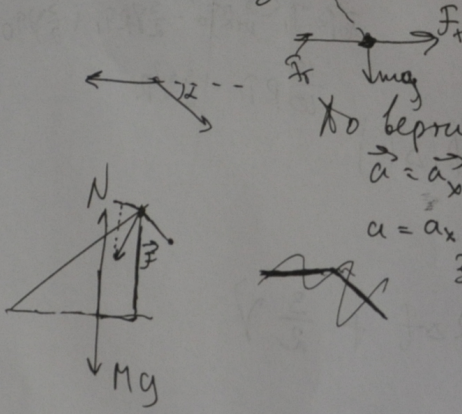 Fₓ
Fr
mg
α
По верти
a⃗ = a⃗ₓ
a = aₓ
N
F⃗
Mg